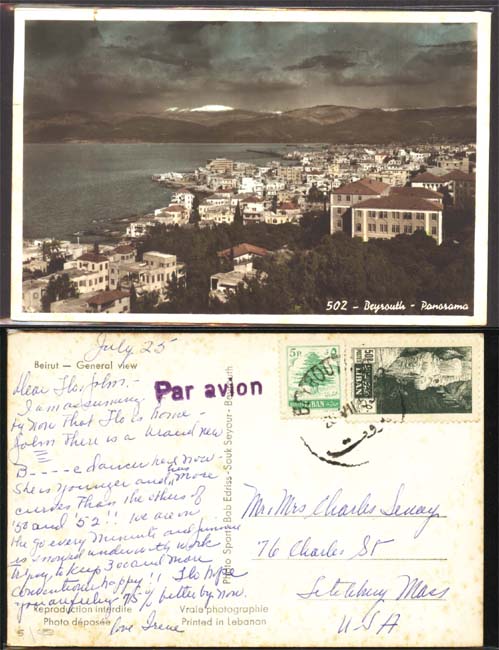 502 - Beyrouth - Panorama
July 25
Beirut - General view
Dear Flo & John -
I am assuming
by now that Flo is home -
John There is a brand new
B----e dancer here now -
She is younger and has more
curves than the others of
'50 and '52!! We are on
the go every minute and
is snowed under with work
trying to keep 300 and more
conventioners happy!! Flo hope
you are feeling 75% better by now.
love Irene
Par avion
Photo Sport - Bab Edriss - Souk Seyour - Beyrouth
5P
LIBAN
50P
LIBAN
BEYROUTH
VII
بيروت
Mr. Mrs Charles
76 Charles St
Fitchburg Mass
USA
Reproduction interdite
Photo déposée
Vraie photographie
Printed in Lebanon